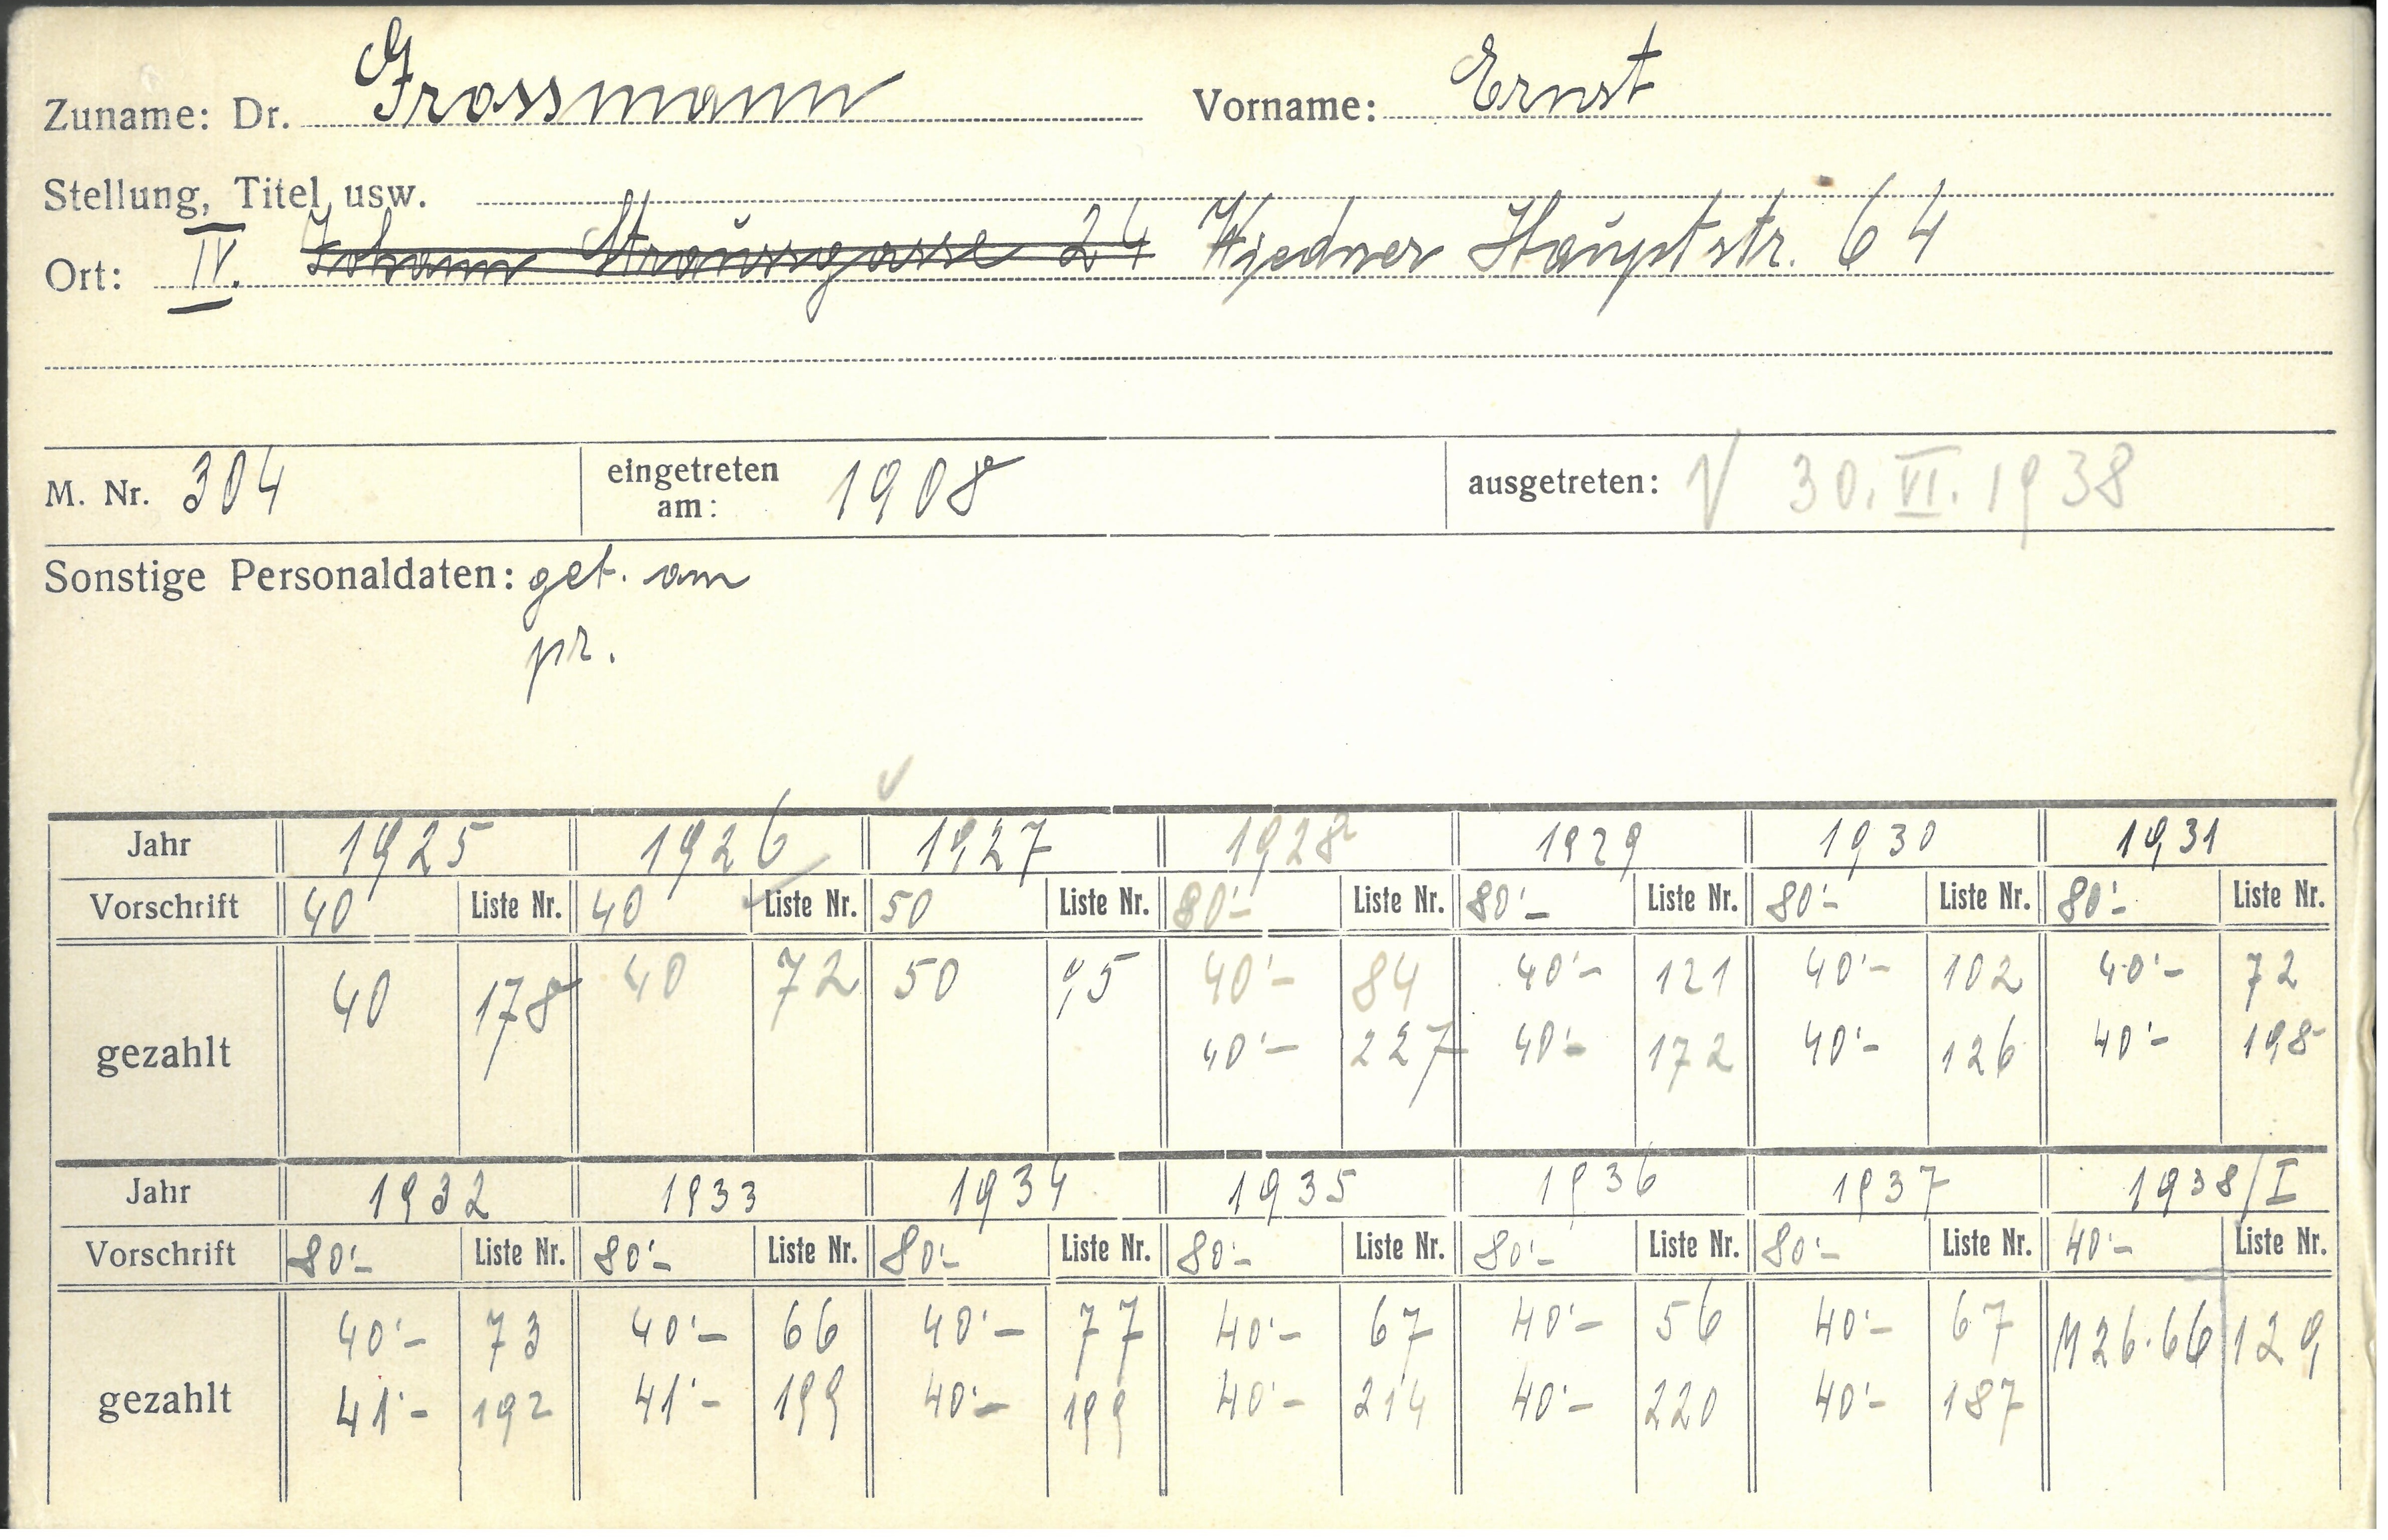 Zuname: Dr. Grossmann Vorname: Ernst
Stellung, Titel usw.
Ort: IV. Johann Straussgasse 24 Wiedner Hauptstr. 64
M. Nr. 304 eingetreten am: 1908 ausgetreten: 30. VI. 1938
Sonstige Personaldaten: get. am
pr.
Jahr 1925 1926 1927 1928 1929 1930 1931
Vorschrift 40 Liste Nr. 40 Liste Nr. 50 Liste Nr. 80'- Liste Nr. 80'- Liste Nr. 80'- Liste Nr. 80'- Liste Nr.
gezahlt 40 178 40 72 50 95 40'- 84 40'- 121 40'- 102 40'- 72
40'- 227 40'- 172 40'- 126 40'- 198
Jahr 1932 1933 1934 1935 1936 1937 1938/I
Vorschrift 80'- Liste Nr. 80'- Liste Nr. 80'- Liste Nr. 80'- Liste Nr. 80'- Liste Nr. 80'- Liste Nr. 40'- Liste Nr.
gezahlt 40'- 73 40'- 66 40'- 77 40'- 67 40'- 56 40'- 67 M 26.66 129
41'- 192 41'- 199 40'- 199 40'- 214 40'- 220 40'- 187